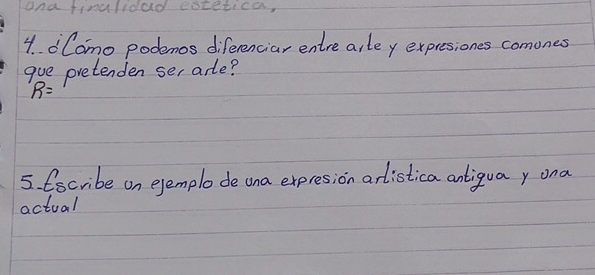 una finalidad estetica,
4.- ¿Cómo podemos diferenciar entre arte y expresiones comunes
que pretenden ser arte?
R=
5.- Escribe un ejemplo de una expresión artistica antigua y una
actual